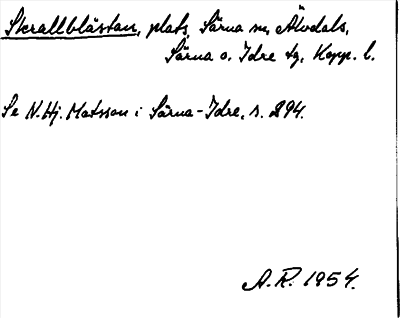 Skrallblåstan, plats, Särna sn, Älvdals,
Särna o. Idre tg, Kopp. l.
Se N. Hj. Matsson i Särna-Idre, s. 294.
A.R. 1954.